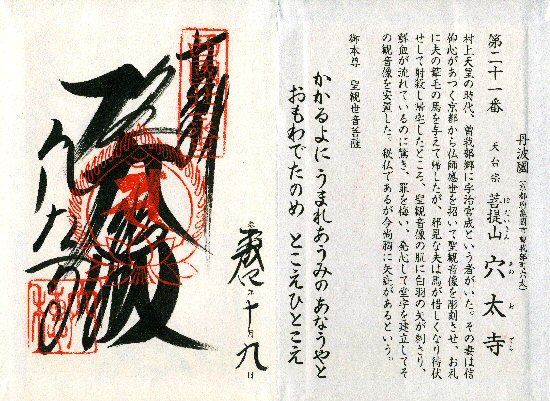 丹波國（京都府亀岡市曽我部町穴太）
第二十一番　天台宗　菩提山　穴太寺
ぼだいさん　あのおでら
村上天皇の時代、曽我部郷に宇治宮成という者がいた。その妻は信
仰心があつく京都から仏師感世を招いて聖観音像を彫刻させ、お礼
に夫の葦毛の馬を与えて帰したが、邪見な夫は馬が惜しくなり待伏
せして射殺し帰宅したところ、聖観音像の肢に白羽の矢が刺さり、
鮮血が流れているのに驚き、罪を悔い、発心して堂宇を建立してそ
の観音像を安置した。秘仏であるが今尚胸に矢疵があるという。
御本尊　聖観世音菩薩
かかるよに うまれあうみの あなうやと
おもわでたのめ とこえひとこえ
十月九日